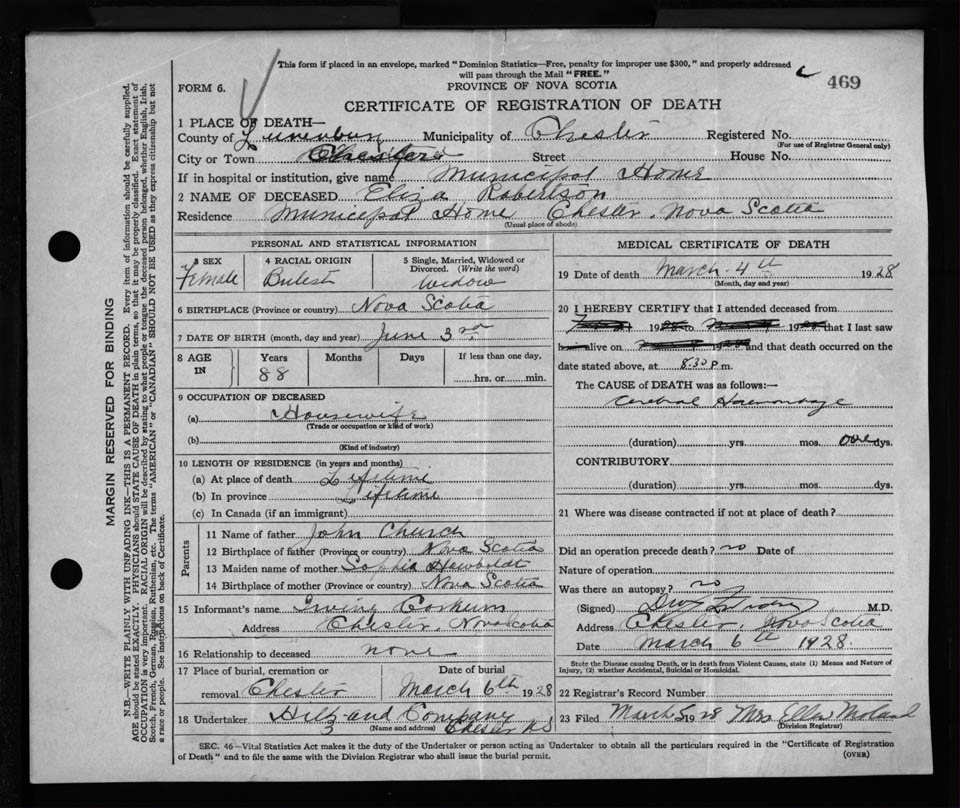 This form if placed in an envelope, marked "Dominion Statistics—Free, penalty for improper use $300," and properly addressed
will pass through the Mail "FREE."
469
FORM 6.
PROVINCE OF NOVA SCOTIA
CERTIFICATE OF REGISTRATION OF DEATH
1 PLACE OF DEATH—
County of Lunenburg Municipality of Chester Registered No.
(For use of Registrar General only)
City or Town Street House No.
If in hospital or institution, give name Municipal Home
2 NAME OF DECEASED Eliza Robertson
Residence Municipal Home Chester, Nova Scotia
(Usual place of abode)
PERSONAL AND STATISTICAL INFORMATION
3 SEX Female
4 RACIAL ORIGIN
5 Single, Married, Widowed or Divorced. (Write the word) Widow
6 BIRTHPLACE (Province or country) Nova Scotia
7 DATE OF BIRTH (month, day and year) June 3rd
8 AGE IN Years 88 Months Days If less than one day, hrs. or min.
9 OCCUPATION OF DECEASED
(a) Housewife
(Trade or occupation or kind of work)
(b)
(Kind of industry)
10 LENGTH OF RESIDENCE (in years and months)
(a) At place of death Lifetime
(b) In province Lifetime
(c) In Canada (if an immigrant)
Parents
11 Name of father John Church
12 Birthplace of father (Province or country) Nova Scotia
13 Maiden name of mother Sophia Hawboldt
14 Birthplace of mother (Province or country) Nova Scotia
15 Informant's name Irving Corkum
Address Chester, Nova Scotia
16 Relationship to deceased none
17 Place of burial, cremation or removal Chester
Date of burial March 6th 1928
18 Undertaker and Company
(Name and address) Chester NS
MEDICAL CERTIFICATE OF DEATH
19 Date of death March 4th 1928
(Month, day and year)
20 I HEREBY CERTIFY that I attended deceased from
19 to 19 that I last saw
alive on 19 and that death occurred on the
date stated above, at 8.30 P m.
The CAUSE of DEATH was as follows:—
Cerebral Haemorrhage
(duration) yrs. mos. one dys.
CONTRIBUTORY
(duration) yrs. mos. dys.
21 Where was disease contracted if not at place of death?
Did an operation precede death? no Date of
Nature of operation
Was there an autopsy? no
(Signed) M.D.
Address Chester, Nova Scotia
Date March 6th 1928
State the Disease causing Death, or in death from Violent Causes, state (1) Means and Nature of
Injury, (2) whether Accidental, Suicidal or Homicidal.
22 Registrar's Record Number
23 Filed March 1928 Mrs Ella
(Division Registrar)
SEC. 46—Vital Statistics Act makes it the duty of the Undertaker or person acting as Undertaker to obtain all the particulars required in the "Certificate of Registration
of Death" and to file the same with the Division Registrar who shall issue the burial permit.
(OVER)
MARGIN RESERVED FOR BINDING
N.B.—WRITE PLAINLY WITH UNFADING INK—THIS IS A PERMANENT RECORD. Every item of information should be carefully supplied.
AGE should be stated EXACTLY. PHYSICIANS should STATE CAUSE OF DEATH in plain terms, so that it may be properly classified. Exact statement of
OCCUPATION is very important. RACIAL ORIGIN will be described by stating to what people or tongue the deceased person belonged, whether English, Irish,
Scotch, French, German, Russian, Ruthenian, etc. The terms "AMERICAN" or "CANADIAN" SHOULD NOT BE USED as they express citizenship but not
a race or people. See instructions on back of Certificate.